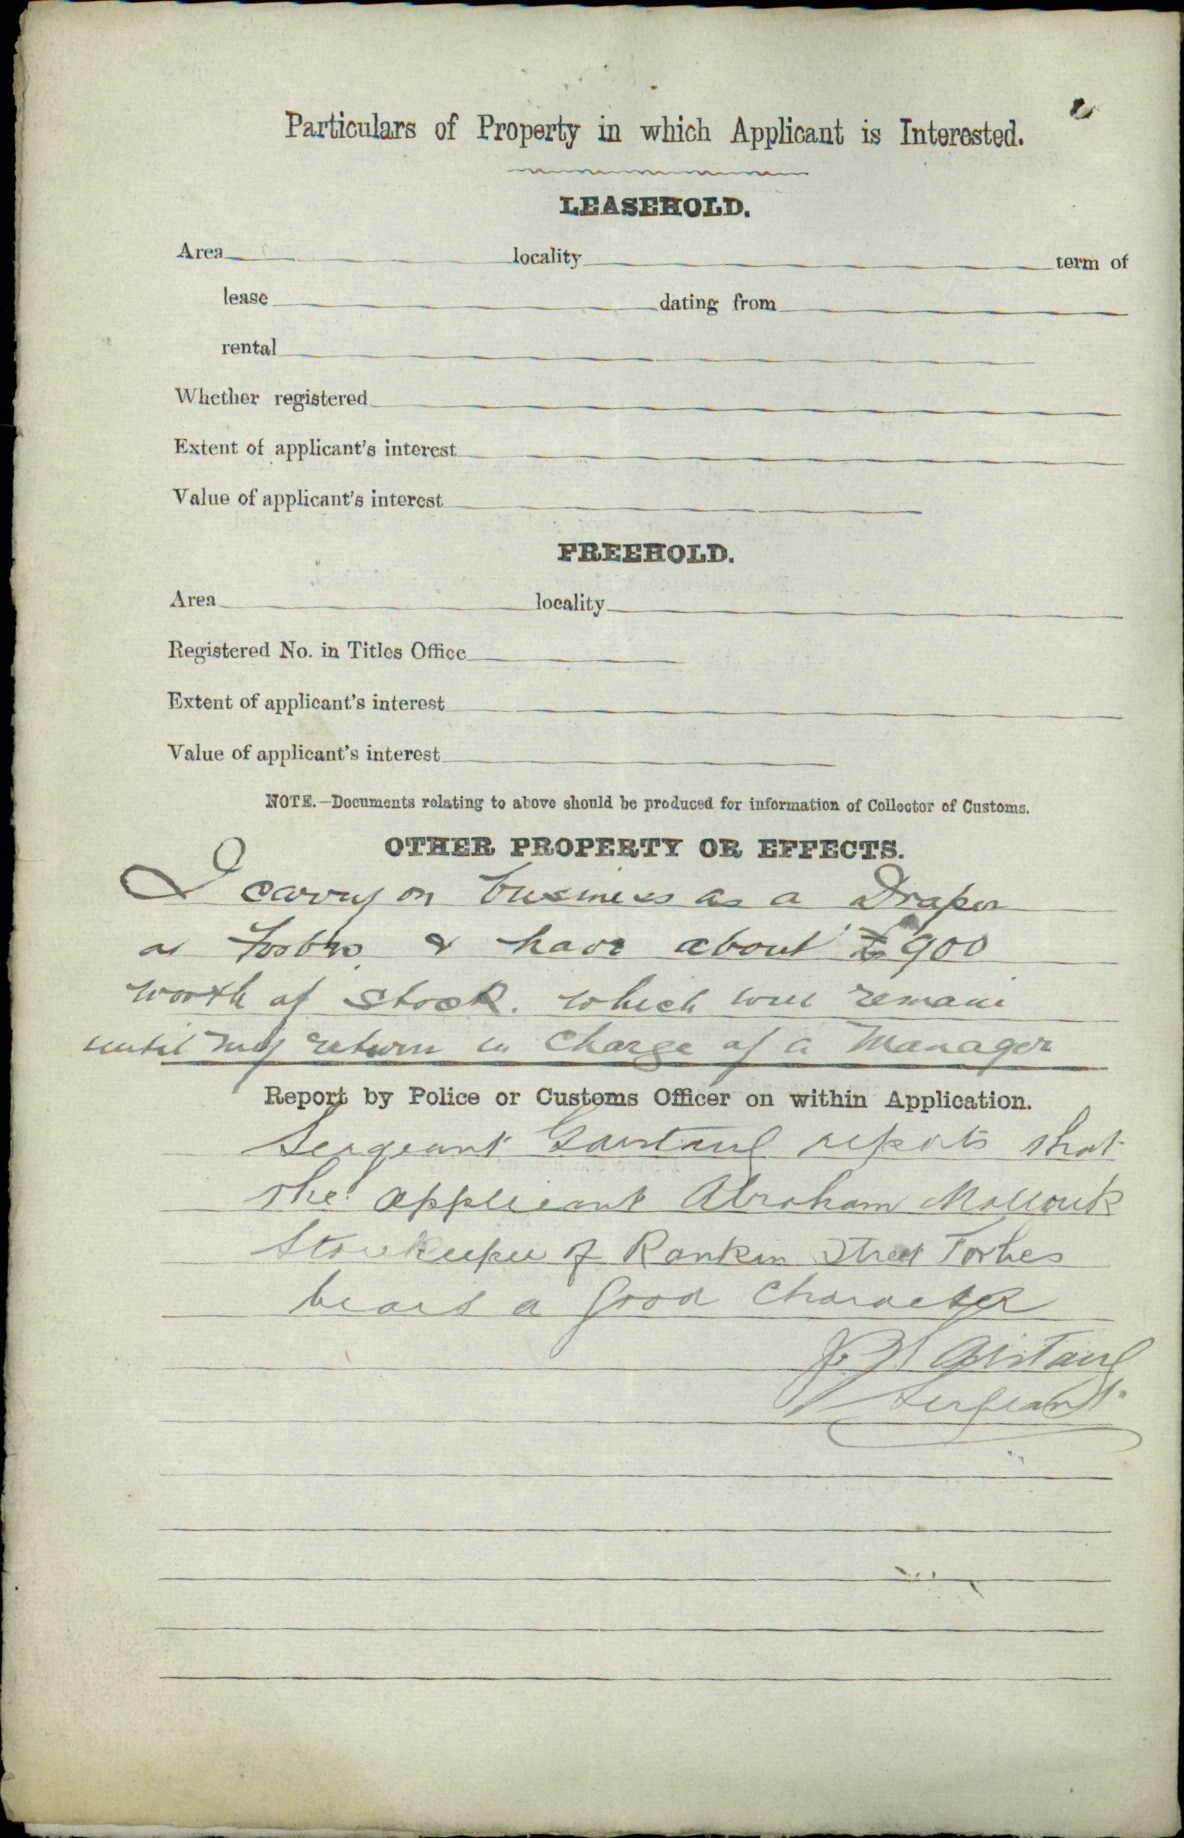 Particulars of Property in which Applicant is Interested.
LEASEHOLD.
Area locality term of
lease dating from
rental
Whether registered
Extent of applicant's interest
Value of applicant's interest
FREEHOLD.
Area locality
Registered No. in Titles Office
Extent of applicant's interest
Value of applicant's interest
NOTE.—Documents relating to above should be produced for information of Collector of Customs.
OTHER PROPERTY OR EFFECTS.
I carry on business as a Draper
at Forbes & have about £900
worth of stock. which will remain
until my return in charge of a Manager
Report by Police or Customs Officer on within Application.
Sergeant Garstang reports that
the applicant Abraham Mallouk
Storekeeper of Rankin Street Forbes
bears a good character
Garstang
Sergeant